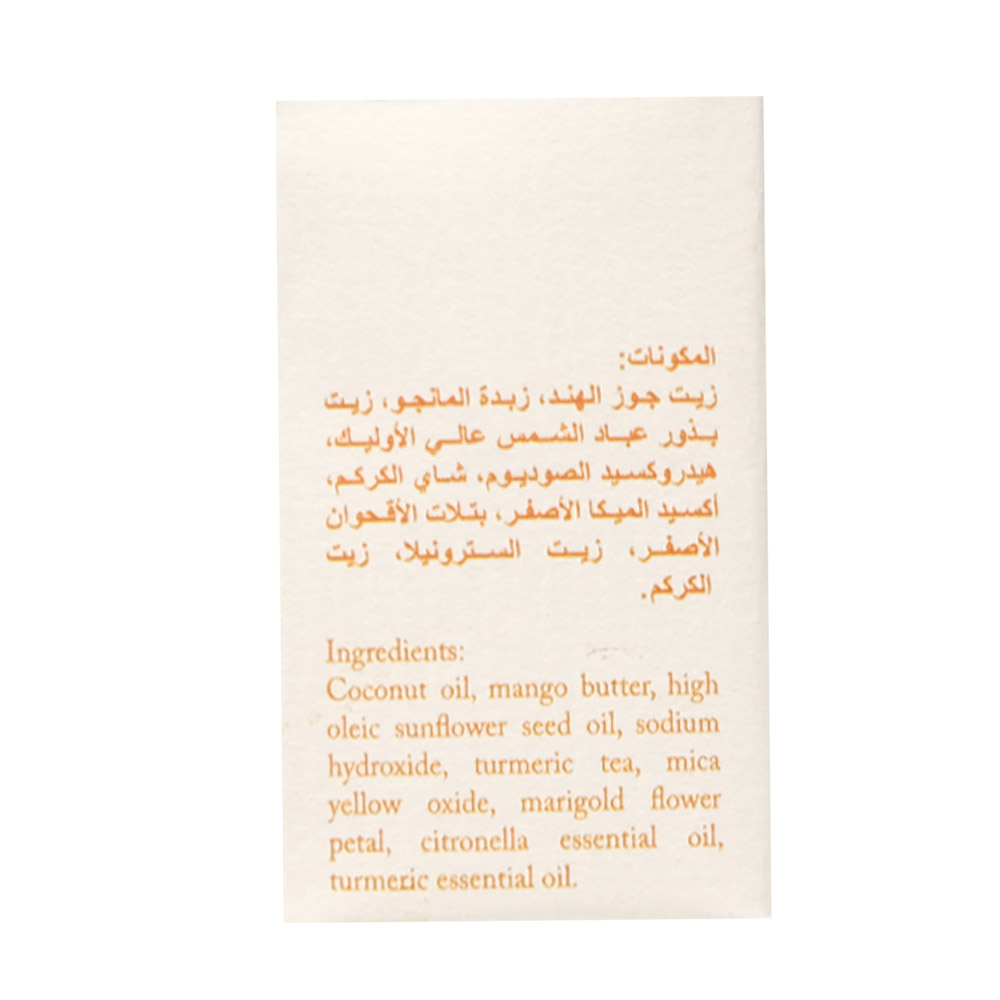 المكونات:
زيت جوز الهند، زبدة المانجو، زيت
بذور عباد الشمس عالي الأوليك،
هيدروكسيد الصوديوم، شاي الكركم،
أكسيد الميكا الأصفر، بتلات الأقحوان
الأصفر، زيت السترونيلا، زيت
الكركم.
Ingredients:
Coconut oil, mango butter, high
oleic sunflower seed oil, sodium
hydroxide, turmeric tea, mica
yellow oxide, marigold flower
petal, citronella essential oil,
turmeric essential oil.